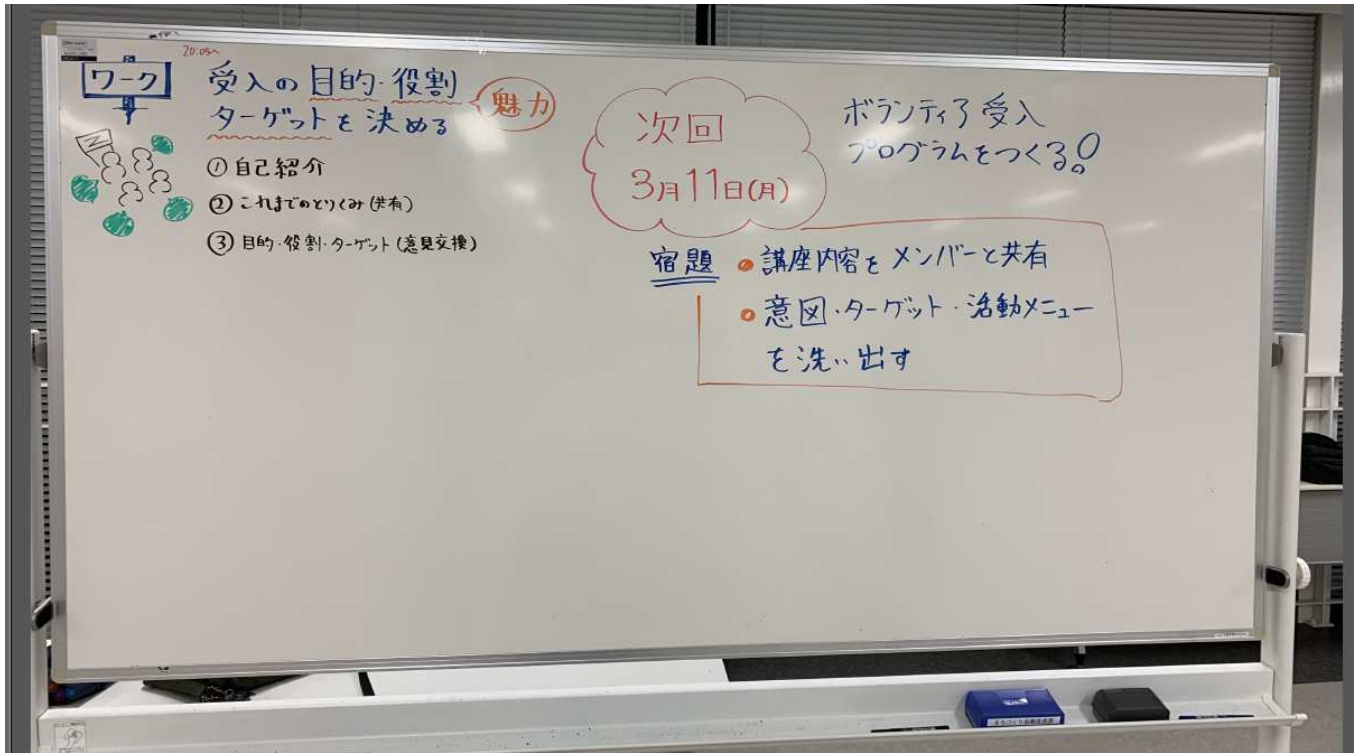 20:05~
ワーク
受入の目的・役割
魅力
ターゲットを決める
①自己紹介
②これまでのとりくみ(共有)
③目的・役割・ターゲット(意見交換)
次回
3月11日(月)
ボランティア受入
プログラムをつくる!
宿題
●講座内容をメンバーと共有
●意図・ターゲット・活動メニュー
を洗い出す